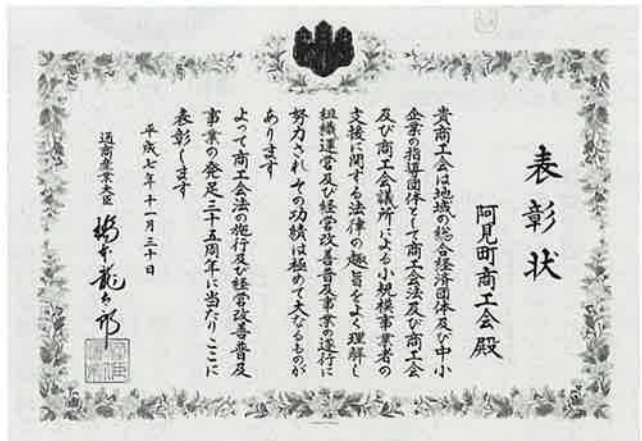 表彰状
阿見町商工会殿
貴商工会は地域の総合経済団体及び中小
企業の指導団体として商工会法及び商工会
及び商工会議所による小規模事業者の
支援に関する法律の趣旨をよく理解し
組織運営及び経営改善普及事業の遂行に
努力されその功績は極めて大なるものが
あります
よって商工会法の施行及び経営改善普及
事業の発足三十五周年に当たりここに
表彰します
平成七年十一月三十日
通商産業大臣 橋本龍太郎